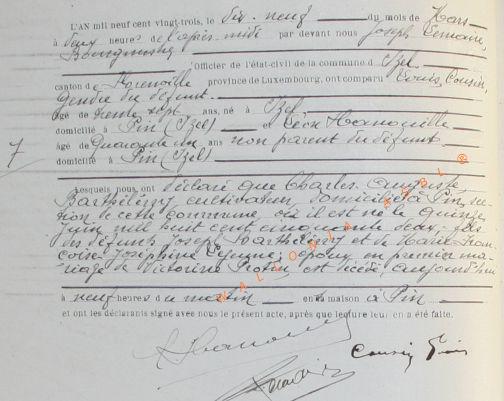 L'AN mil neuf cent vingt-trois, le dix-neuf du mois de Mars
à deux heures de l'après-midi par devant nous Joseph Lemaire,
Bourgmestre
Officier de l'état-civil de la commune d' Izel,
canton de Florenville province de Luxembourg, ont comparu Louis Cousin,
gendre du défunt
âgé de trente sept ans, né à Izel
domicilié à Pin (Izel) et Léon
7
âgé de Quarante un ans non parent du défunt
domicilié à Pin (Izel)
Lesquels nous ont déclaré que Charles Auguste
Barthélemy cultivateur, domicilié à Pin, sec
tion de cette commune, où il est né le quinze
juin mil huit cent cinquante deux, fils
des défunts Joseph Barthélemy et de Marie Fran
çoise Joséphine Lejeune; époux en premier ma
riage de Victorine est décédé aujourd'hui
à neuf heures du matin en sa maison à Pin
et ont les déclarants signé avec nous le présent acte, après que lecture leur en a été faite.
WALLONIA ASBL ®
Cousin Louis